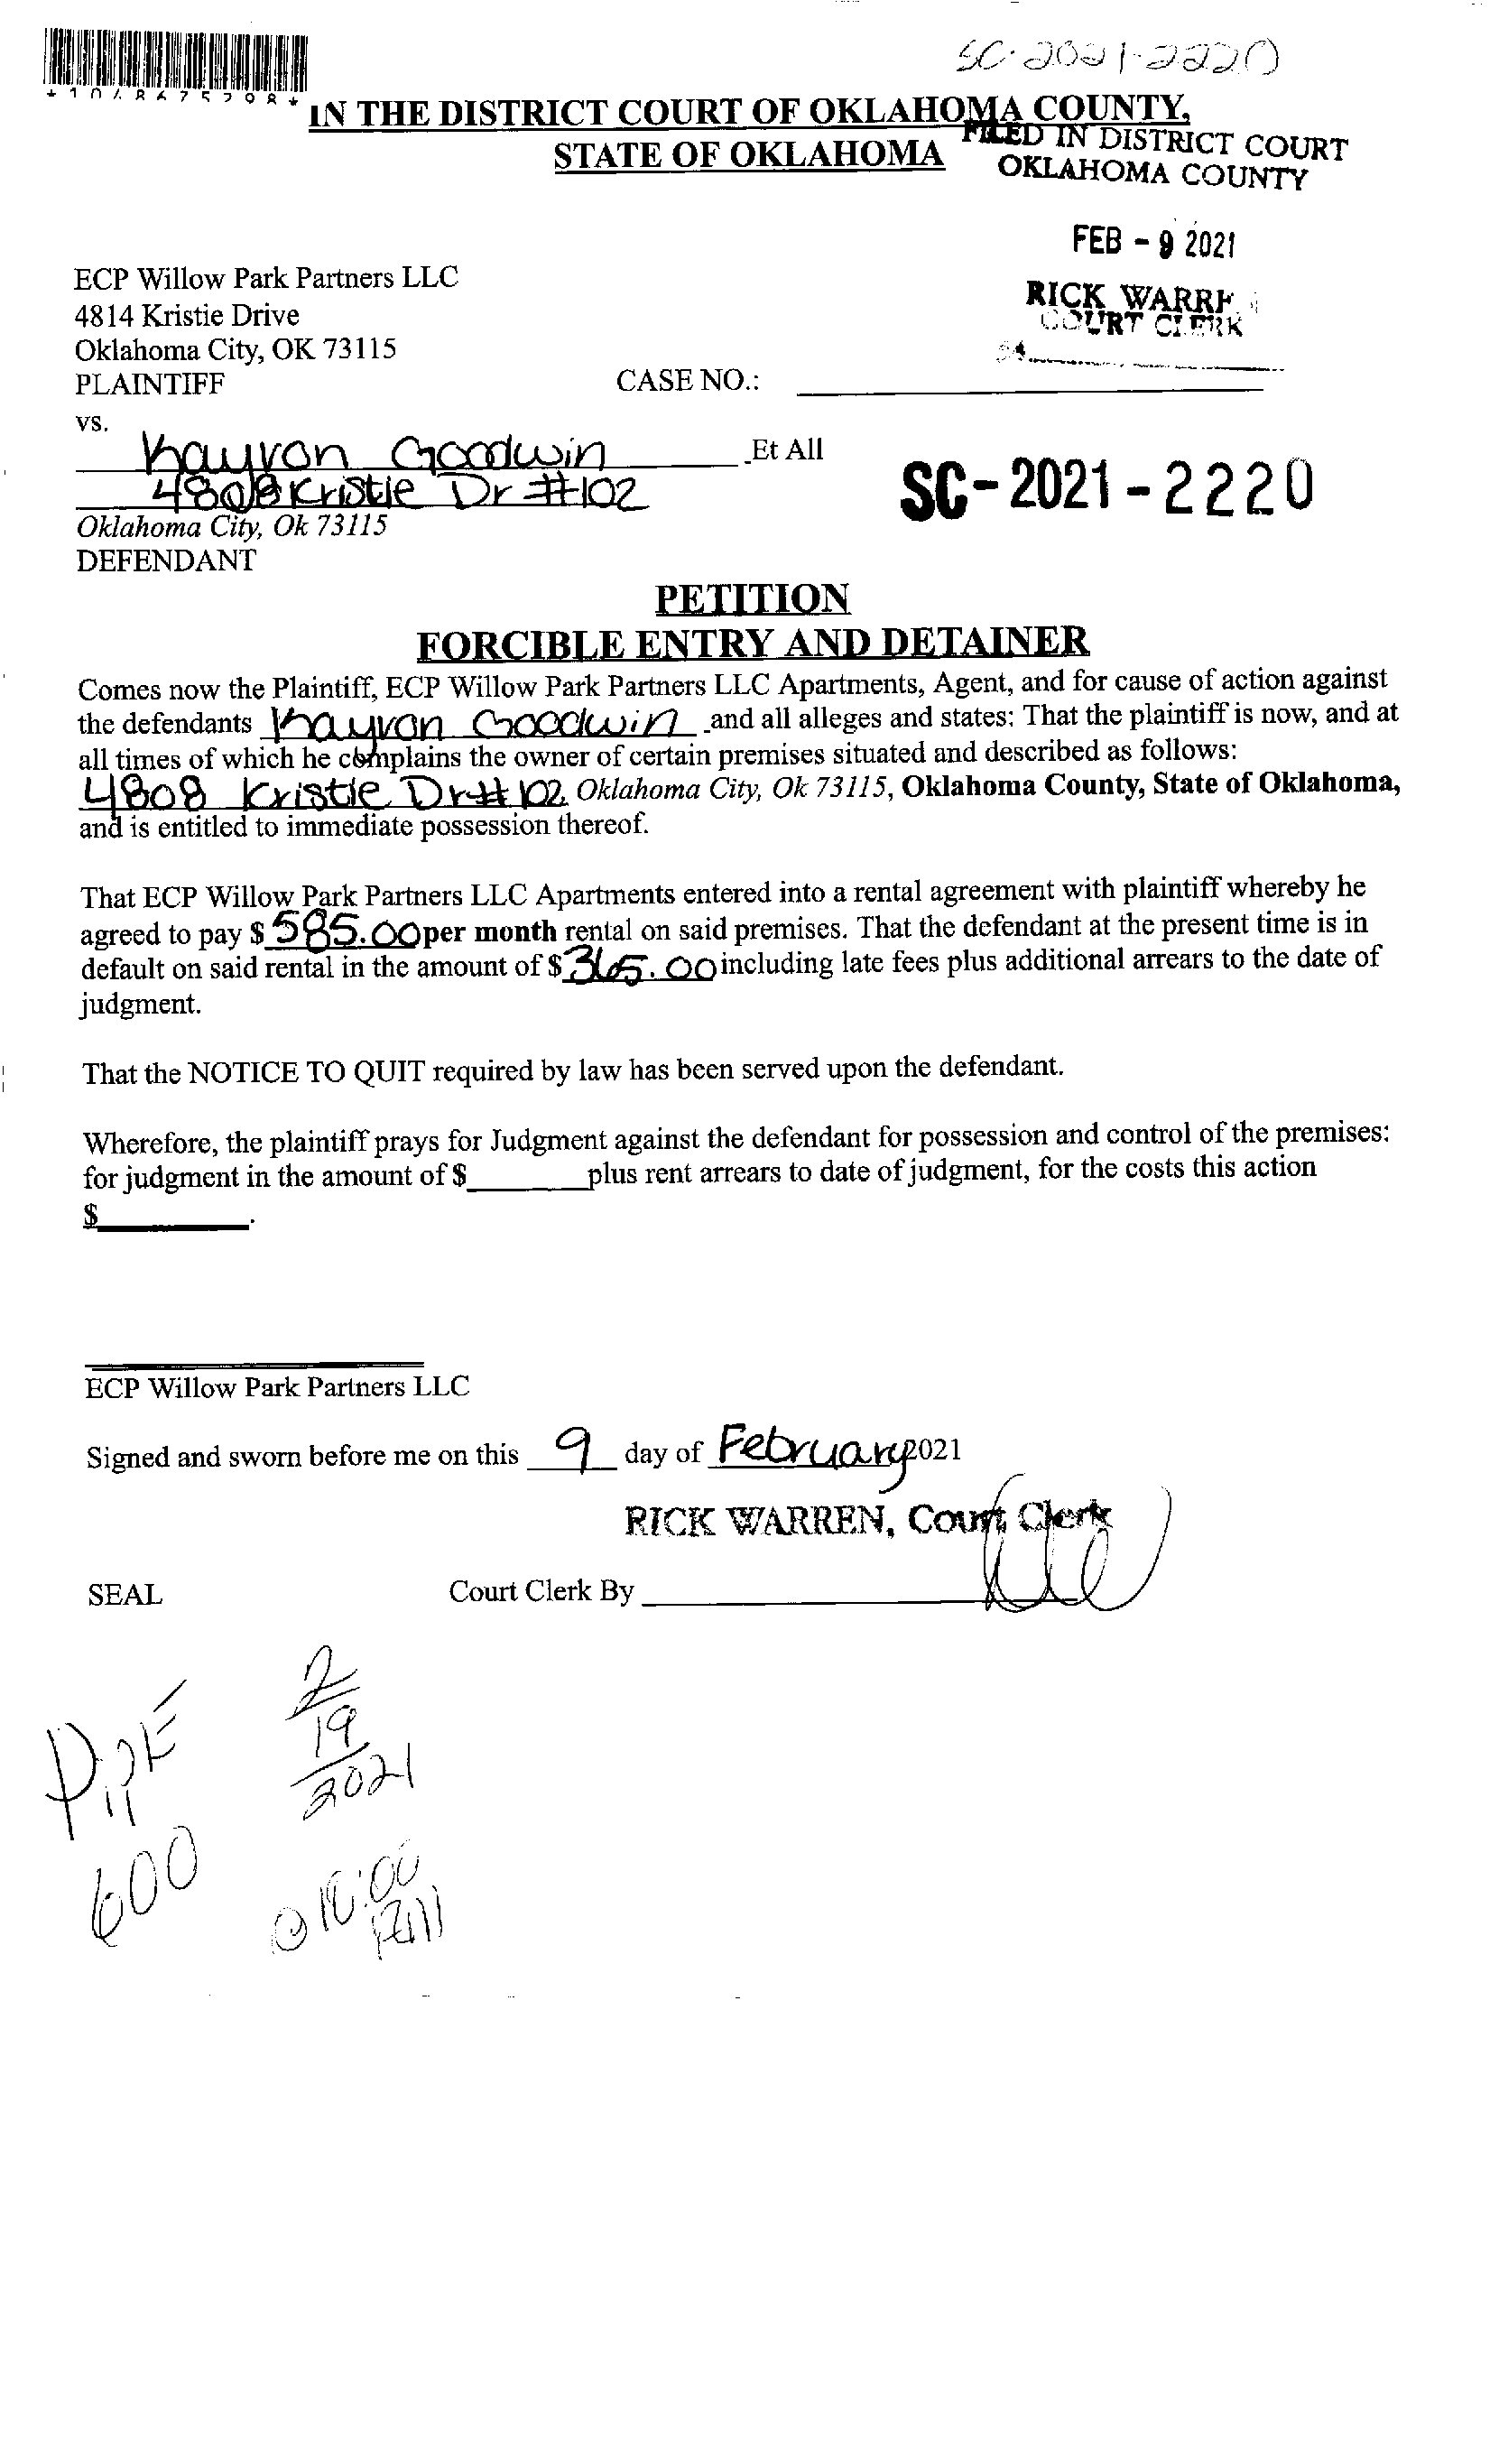 SC-2021-2220
IN THE DISTRICT COURT OF OKLAHOMA COUNTY,
STATE OF OKLAHOMA
FILED IN DISTRICT COURT
OKLAHOMA COUNTY
FEB - 9 2021
RICK WARRE
COURT CLERK
ECP Willow Park Partners LLC
4814 Kristie Drive
Oklahoma City, OK 73115
PLAINTIFF
CASE NO.:
vs.
Kayvon Goodwin Et All
4808 Kristie Dr #102
SC-2021-2220
Oklahoma City, Ok 73115
DEFENDANT
PETITION
FORCIBLE ENTRY AND DETAINER
Comes now the Plaintiff, ECP Willow Park Partners LLC Apartments, Agent, and for cause of action against
the defendants Kayvon Goodwin and all alleges and states: That the plaintiff is now, and at
all times of which he complains the owner of certain premises situated and described as follows:
4808 Kristie Dr #102, Oklahoma City, Ok 73115, Oklahoma County, State of Oklahoma,
and is entitled to immediate possession thereof.
That ECP Willow Park Partners LLC Apartments entered into a rental agreement with plaintiff whereby he
agreed to pay $ 585.00 per month rental on said premises. That the defendant at the present time is in
default on said rental in the amount of $ 365.00 including late fees plus additional arrears to the date of
judgment.
That the NOTICE TO QUIT required by law has been served upon the defendant.
Wherefore, the plaintiff prays for Judgment against the defendant for possession and control of the premises:
for judgment in the amount of $ plus rent arrears to date of judgment, for the costs this action
$ .
ECP Willow Park Partners LLC
Signed and sworn before me on this 9 day of February 2021
RICK WARREN, Court Clerk
SEAL
Court Clerk By
2/19/2021
600